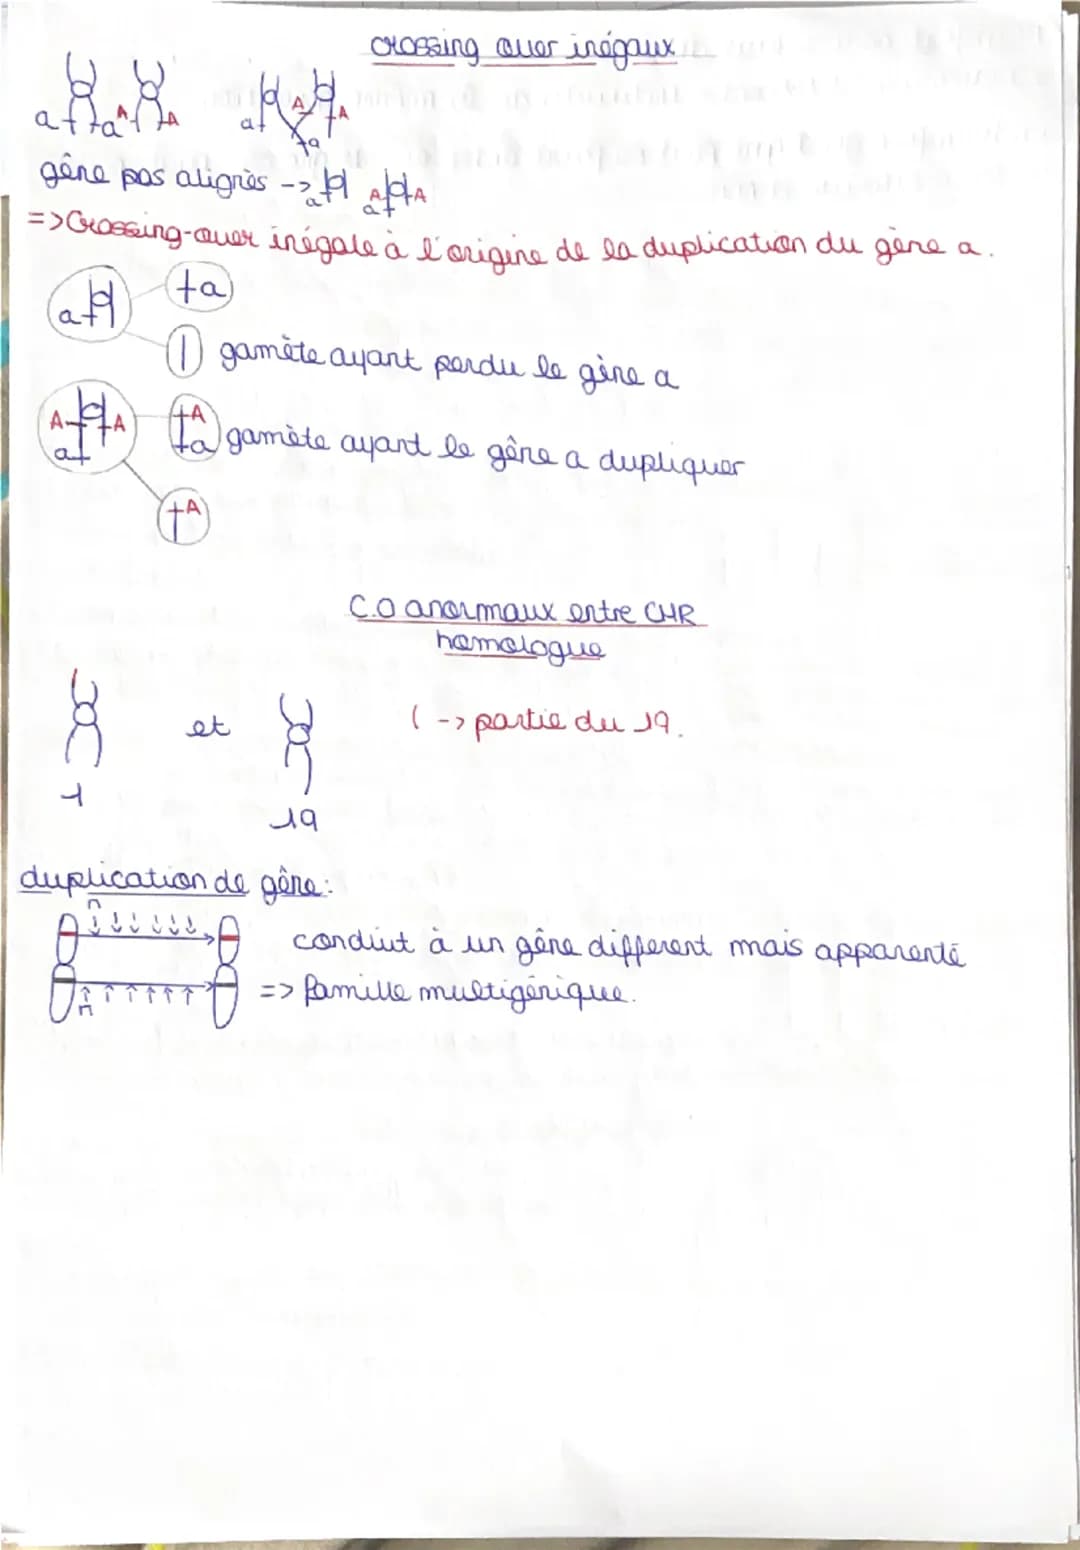 crossing over inégaux
a a A A
a A A a
gène pas alignés -> a A a A
=> Crossing-over inégale à l'origine de la duplication du gène a.
a a
gamète ayant perdu le gène a
A A a A a gamète ayant le gêne a dupliquer
A
C.O anormaux entre CHR
homologue
et ( -> partie du 19.
1 19
duplication de gêne:
n
conduit à un gêne different mais apparenté
n => famille multigénique.